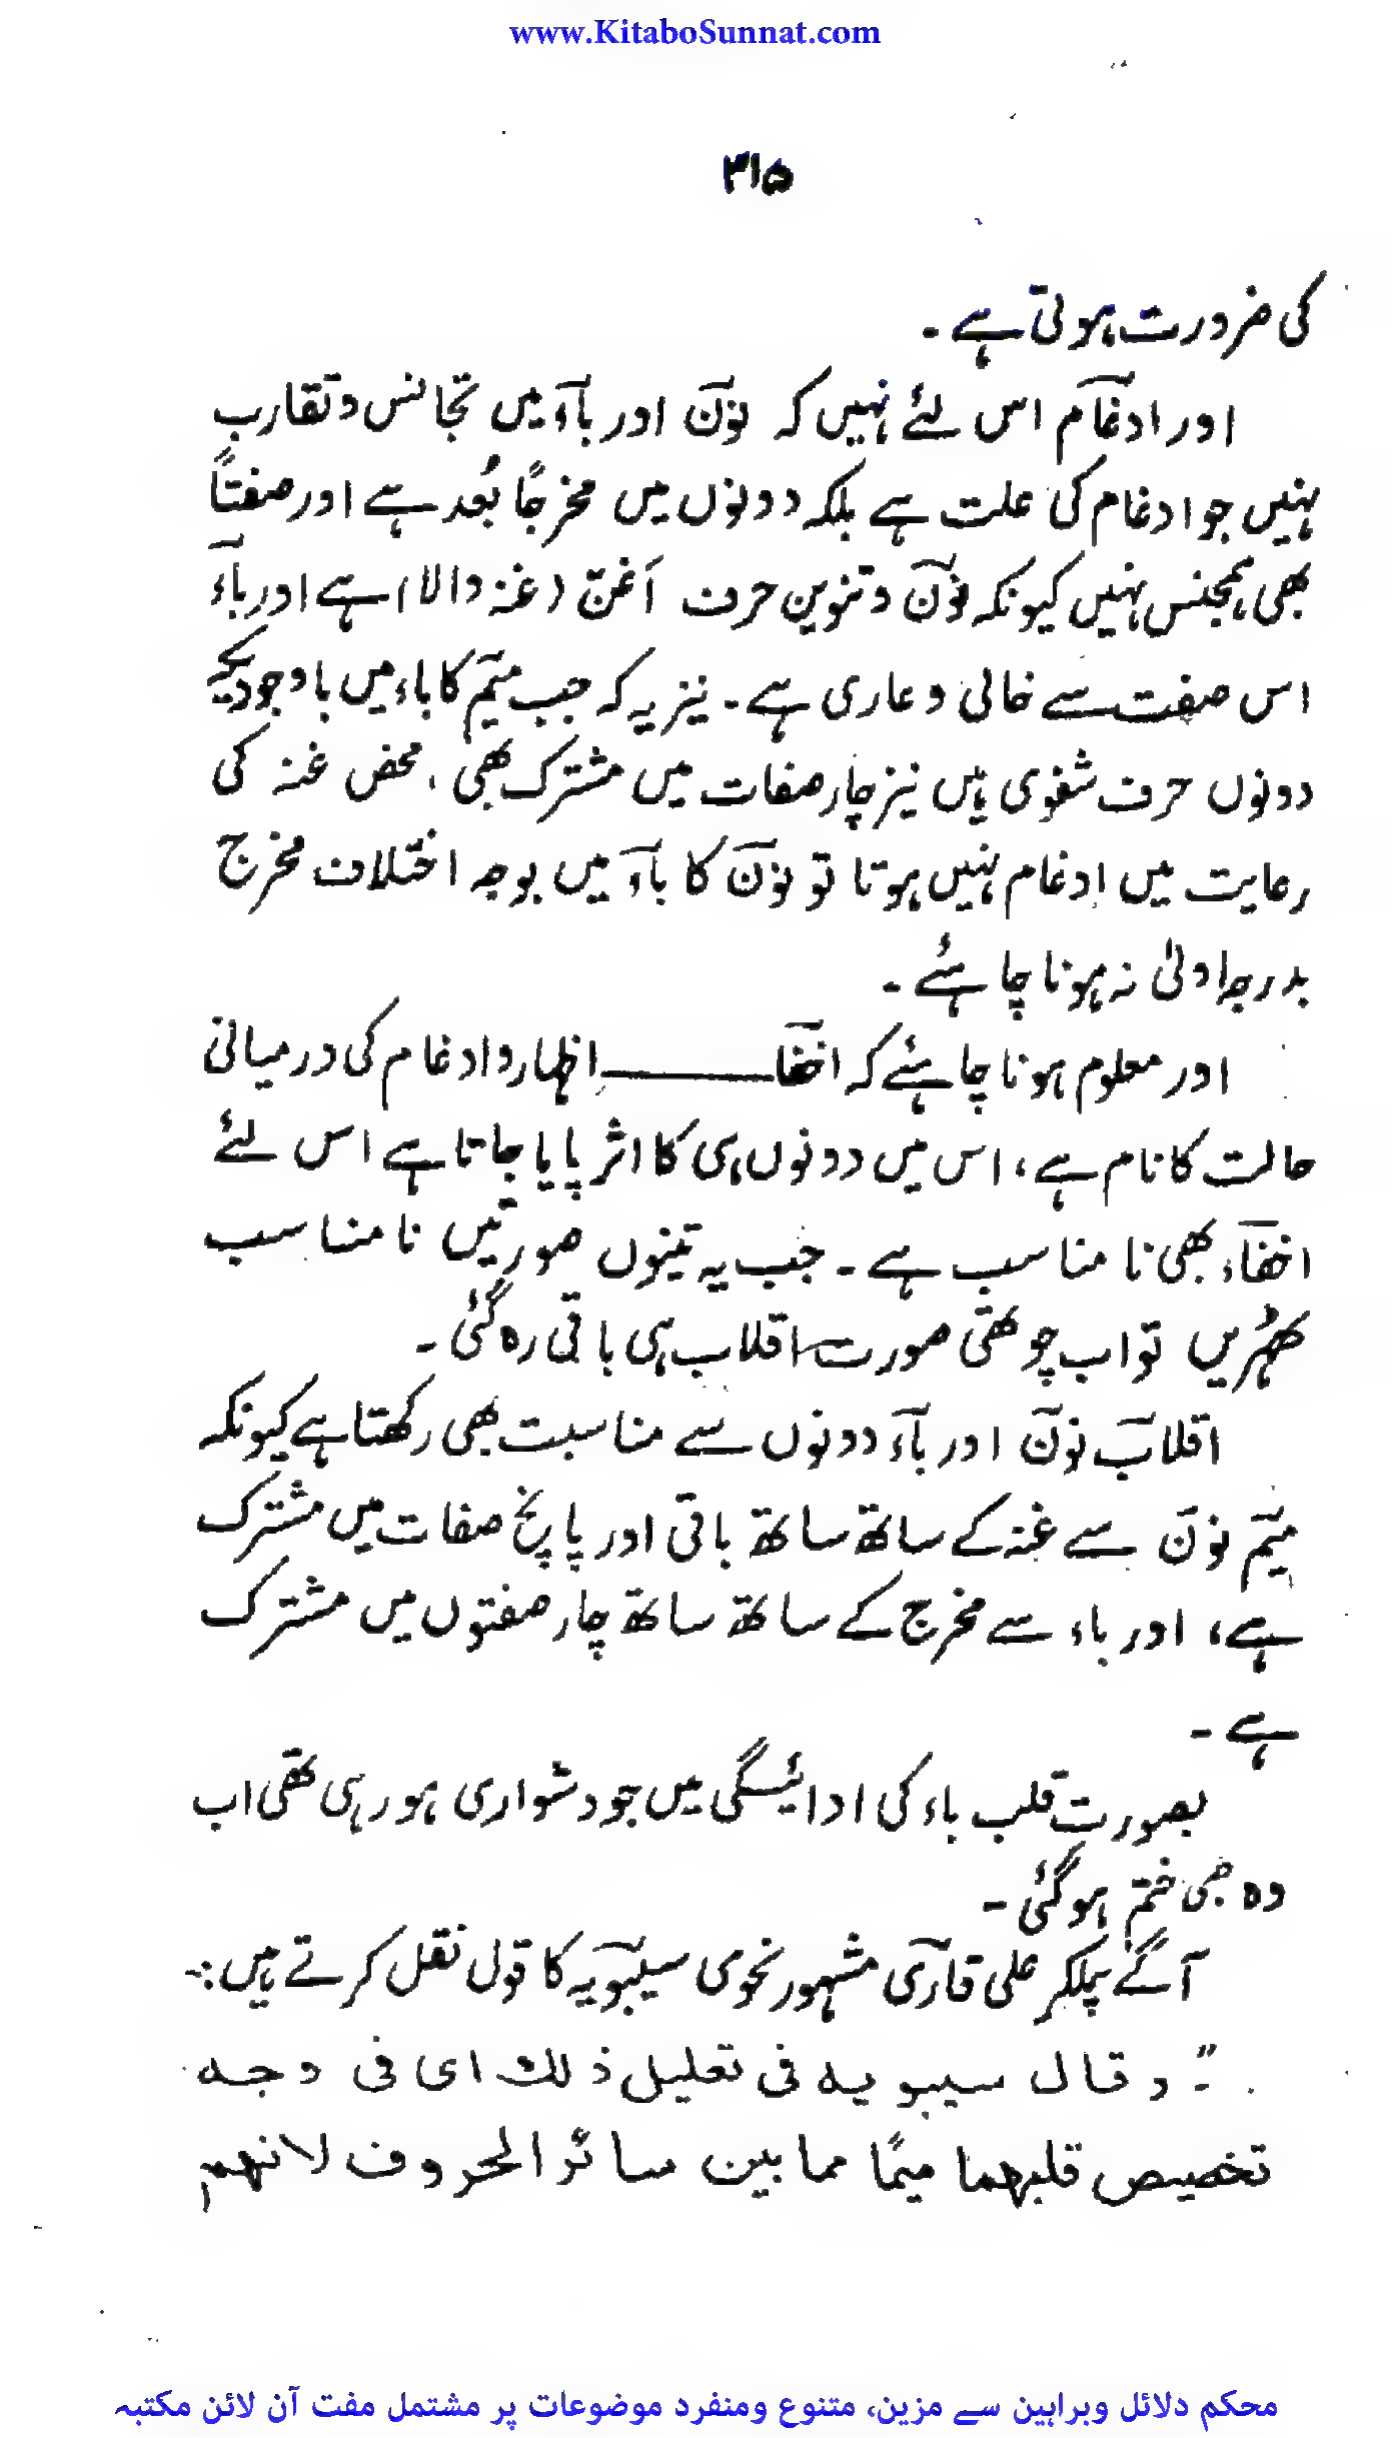 www.KitaboSunnat.com
۳۱۵
کی ضرورت ہوتی ہے ۔
اور ادغام اس لئے نہیں کہ نون اور باء میں تجانس و تقارب
نہیں جو ادغام کی علت ہے بلکہ دونوں میں مخرجًا بُعد ہے اور صفتًا
بھی ہمجنس نہیں کیونکہ نون و تنوین حرف اَغنّ (غنہ والا) ہے اور باء
اس صفت سے خالی و عاری ہے ۔ نیز یہ کہ جب میم کا باء میں باوجودیکہ
دونوں حرف شفوی ہیں نیز چار صفات میں مشترک بھی ، محض غنہ کی
رعایت میں ادغام نہیں ہوتا تو نون کا باء میں بوجہ اختلاف مخرج
بدرجہ اولیٰ نہ ہونا چاہئے ۔
اور معلوم ہونا چاہئے کہ اخفا ـــــــ اظہار و ادغام کی درمیانی
حالت کا نام ہے ، اس میں دونوں ہی کا اثر پایا جاتا ہے اس لئے
اخفاء بھی نا مناسب ہے ۔ جب یہ تینوں صورتیں نا مناسب
ٹھہریں تو اب چوتھی صورت اقلاب ہی باقی رہ گئی ۔
اقلاب نون اور باء دونوں سے مناسبت بھی رکھتا ہے کیونکہ
میم نون سے غنہ کے ساتھ ساتھ باقی اور پانچ صفات میں مشترک
ہے ، اور باء سے مخرج کے ساتھ ساتھ چار صفتوں میں مشترک
ہے ۔
بصورت قلب باء کی ادائیگی میں جو دشواری ہو رہی تھی اب
وہ بھی ختم ہو گئی ۔
آگے چلکر علی قاری مشہور نحوی سیبویہ کا قول نقل کرتے ہیں :-
" ۔ وقال سیبویہ فی تعلیل ذلك ای فی وجہ
تخصیص قلبھما میمًا مما بین سائر الحروف لانھم
محکم دلائل وبراہین سے مزین، متنوع ومنفرد موضوعات پر مشتمل مفت آن لائن مکتبہ